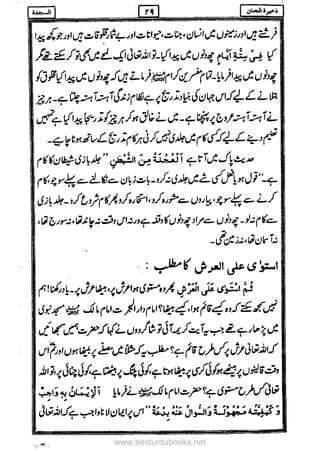 ذخیرة الجنان ۲۹ السجدة
فرشتے ہیں اور زمینوں میں انسان، جنات، حیوانات اور بے شمار مخلوقات ہیں اور جو کچھ پیدا
کیا فِیْ سِتَّةِ اَیَّامٍ چھ دنوں میں پیدا کیا۔ تو اللہ تعالیٰ ایک لمحے میں بھی تو کر سکتے تھے مگر
چھ دنوں میں پیدا فرمایا۔ تمام مفسرین کرام فرماتے ہیں کہ چھ دنوں میں پیدا کیا مخلوق کو
بتلانے کے لیے کہ اس جہان کی بنیاد تدریج پر ہے نظام زندگی آہستہ آہستہ چلتا ہے۔ ہر چیز
آہستہ آہستہ عروج پر پہنچتی ہے۔ میں نے خالق ہو کر ہر چیز کو تدریجاً پیدا کیا ہے تمہیں
تعلیم دینے کے لیے کہ کسی کام میں جلدی نہیں کرنی ہر کام تدریج کے ساتھ ہونا چاہیے۔
حدیث پاک میں آتا ہے اَلْعُجْلَةُ مِنَ الشَّيْطٰنِ "جلد بازی شیطان کا کام
ہے۔" قول ہو یا فعل کسی شے میں جلدی نہ کرو۔ بات زبان سے نکالنے سے پہلے سوچو، کام
کرنے سے پہلے سوچو، پیاروں سے مشورہ کرو، استخارہ کرو پھر کام شروع کرو۔ جلد بازی
سے کام نہ لو۔ چھ دنوں سے مراد چھ دنوں کا وقفہ ہے ورنہ اس وقت نہ چاند تھا، نہ سورج تھا،
نہ آسمان تھا، نہ زمین تھی۔
استوٰی علی العرش کا مطلب :
ثُمَّ اسْتَوٰى عَلَى الْعَرْشِ پھر وہ مستوی ہوا عرش پر، بیٹھا عرش پر۔ یاد رکھنا! ہم
نہیں سمجھ سکتے کہ وہ کیسے قائم ہوا، کیسے بیٹھا؟ امام دار الہجرت امام مالک مسجد نبوی
میں پڑھا رہے تھے جب یہ آیت کریمہ آئی تو شاگردوں نے کہا کہ حضرت ہمیں سمجھائیں
کہ اللہ تعالیٰ عرش پر کس طرح قائم ہے؟ مطلب یہ کہ مثلاً میں مصلے پر بیٹھا ہوں اور تم اس
وقت قالینوں پر بیٹھے ہو کوئی کرسی پر بیٹھا ہوتا ہے، کوئی پلنگ پر بیٹھتا ہے، کوئی چٹائی پر، تو اللہ
تعالیٰ کس طرح مستوی ہے؟ حضرت امام مالک نے فرمایا اَلْاِیْمَانُ بِهٖ وَاجِبٌ
وَ کَیْفِیَّتُهٗ مَجْهُوْلَةٌ وَالسُّوَالُ عَنْهُ بِدْعَةٌ "اس پر ایمان لانا واجب ہے کہ اللہ تعالیٰ
www.besturdubooks.net